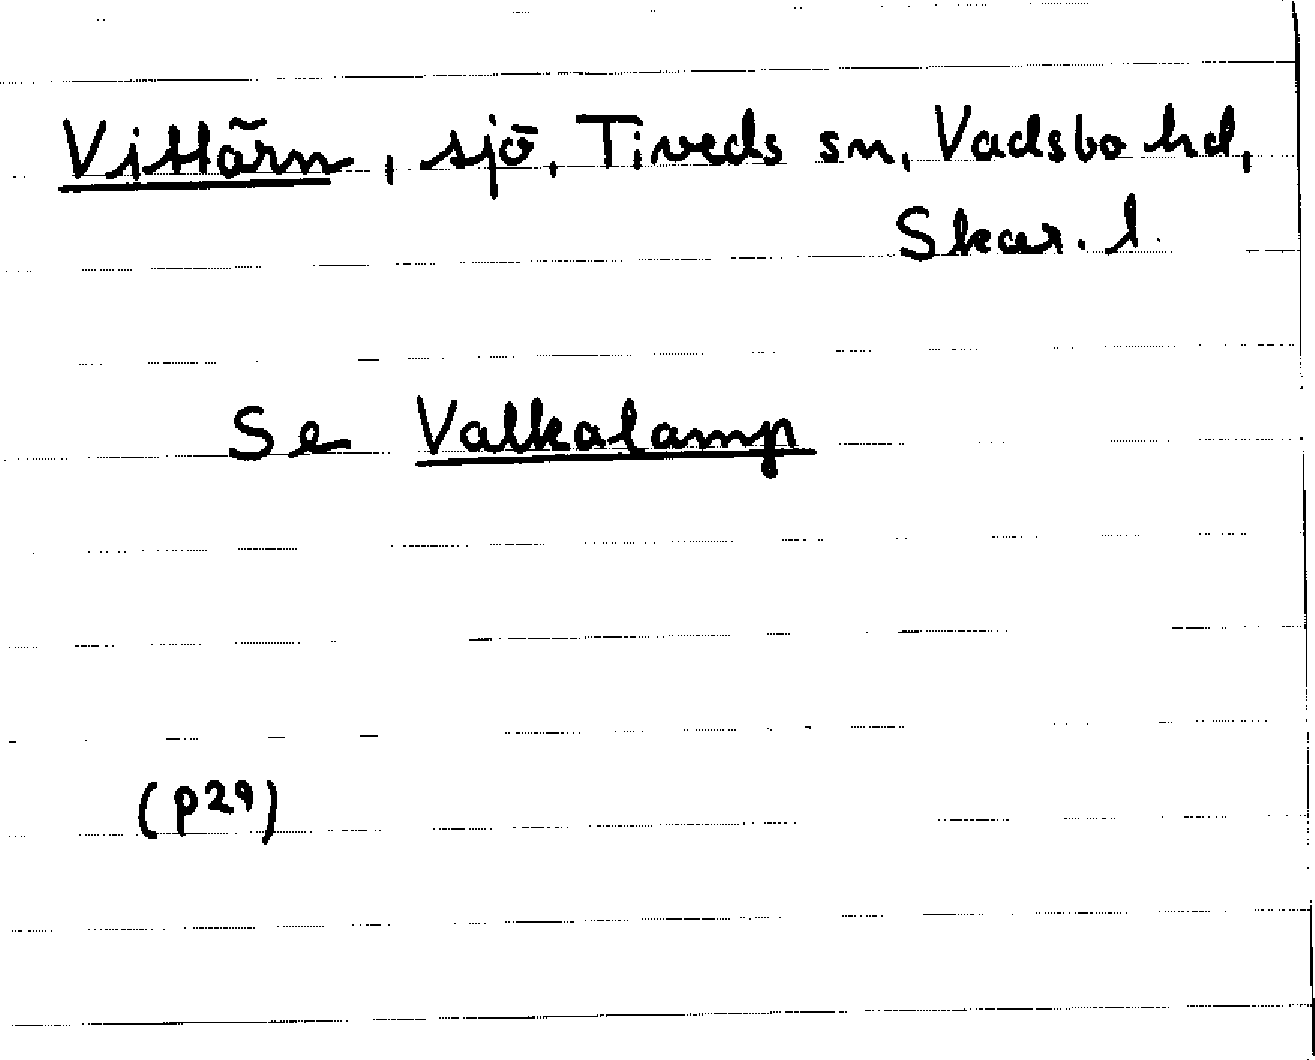 Vittärn, sjö, Tiveds sn, Vadsbo hd,
Skar. l.
Se Valkalamp
(p29)